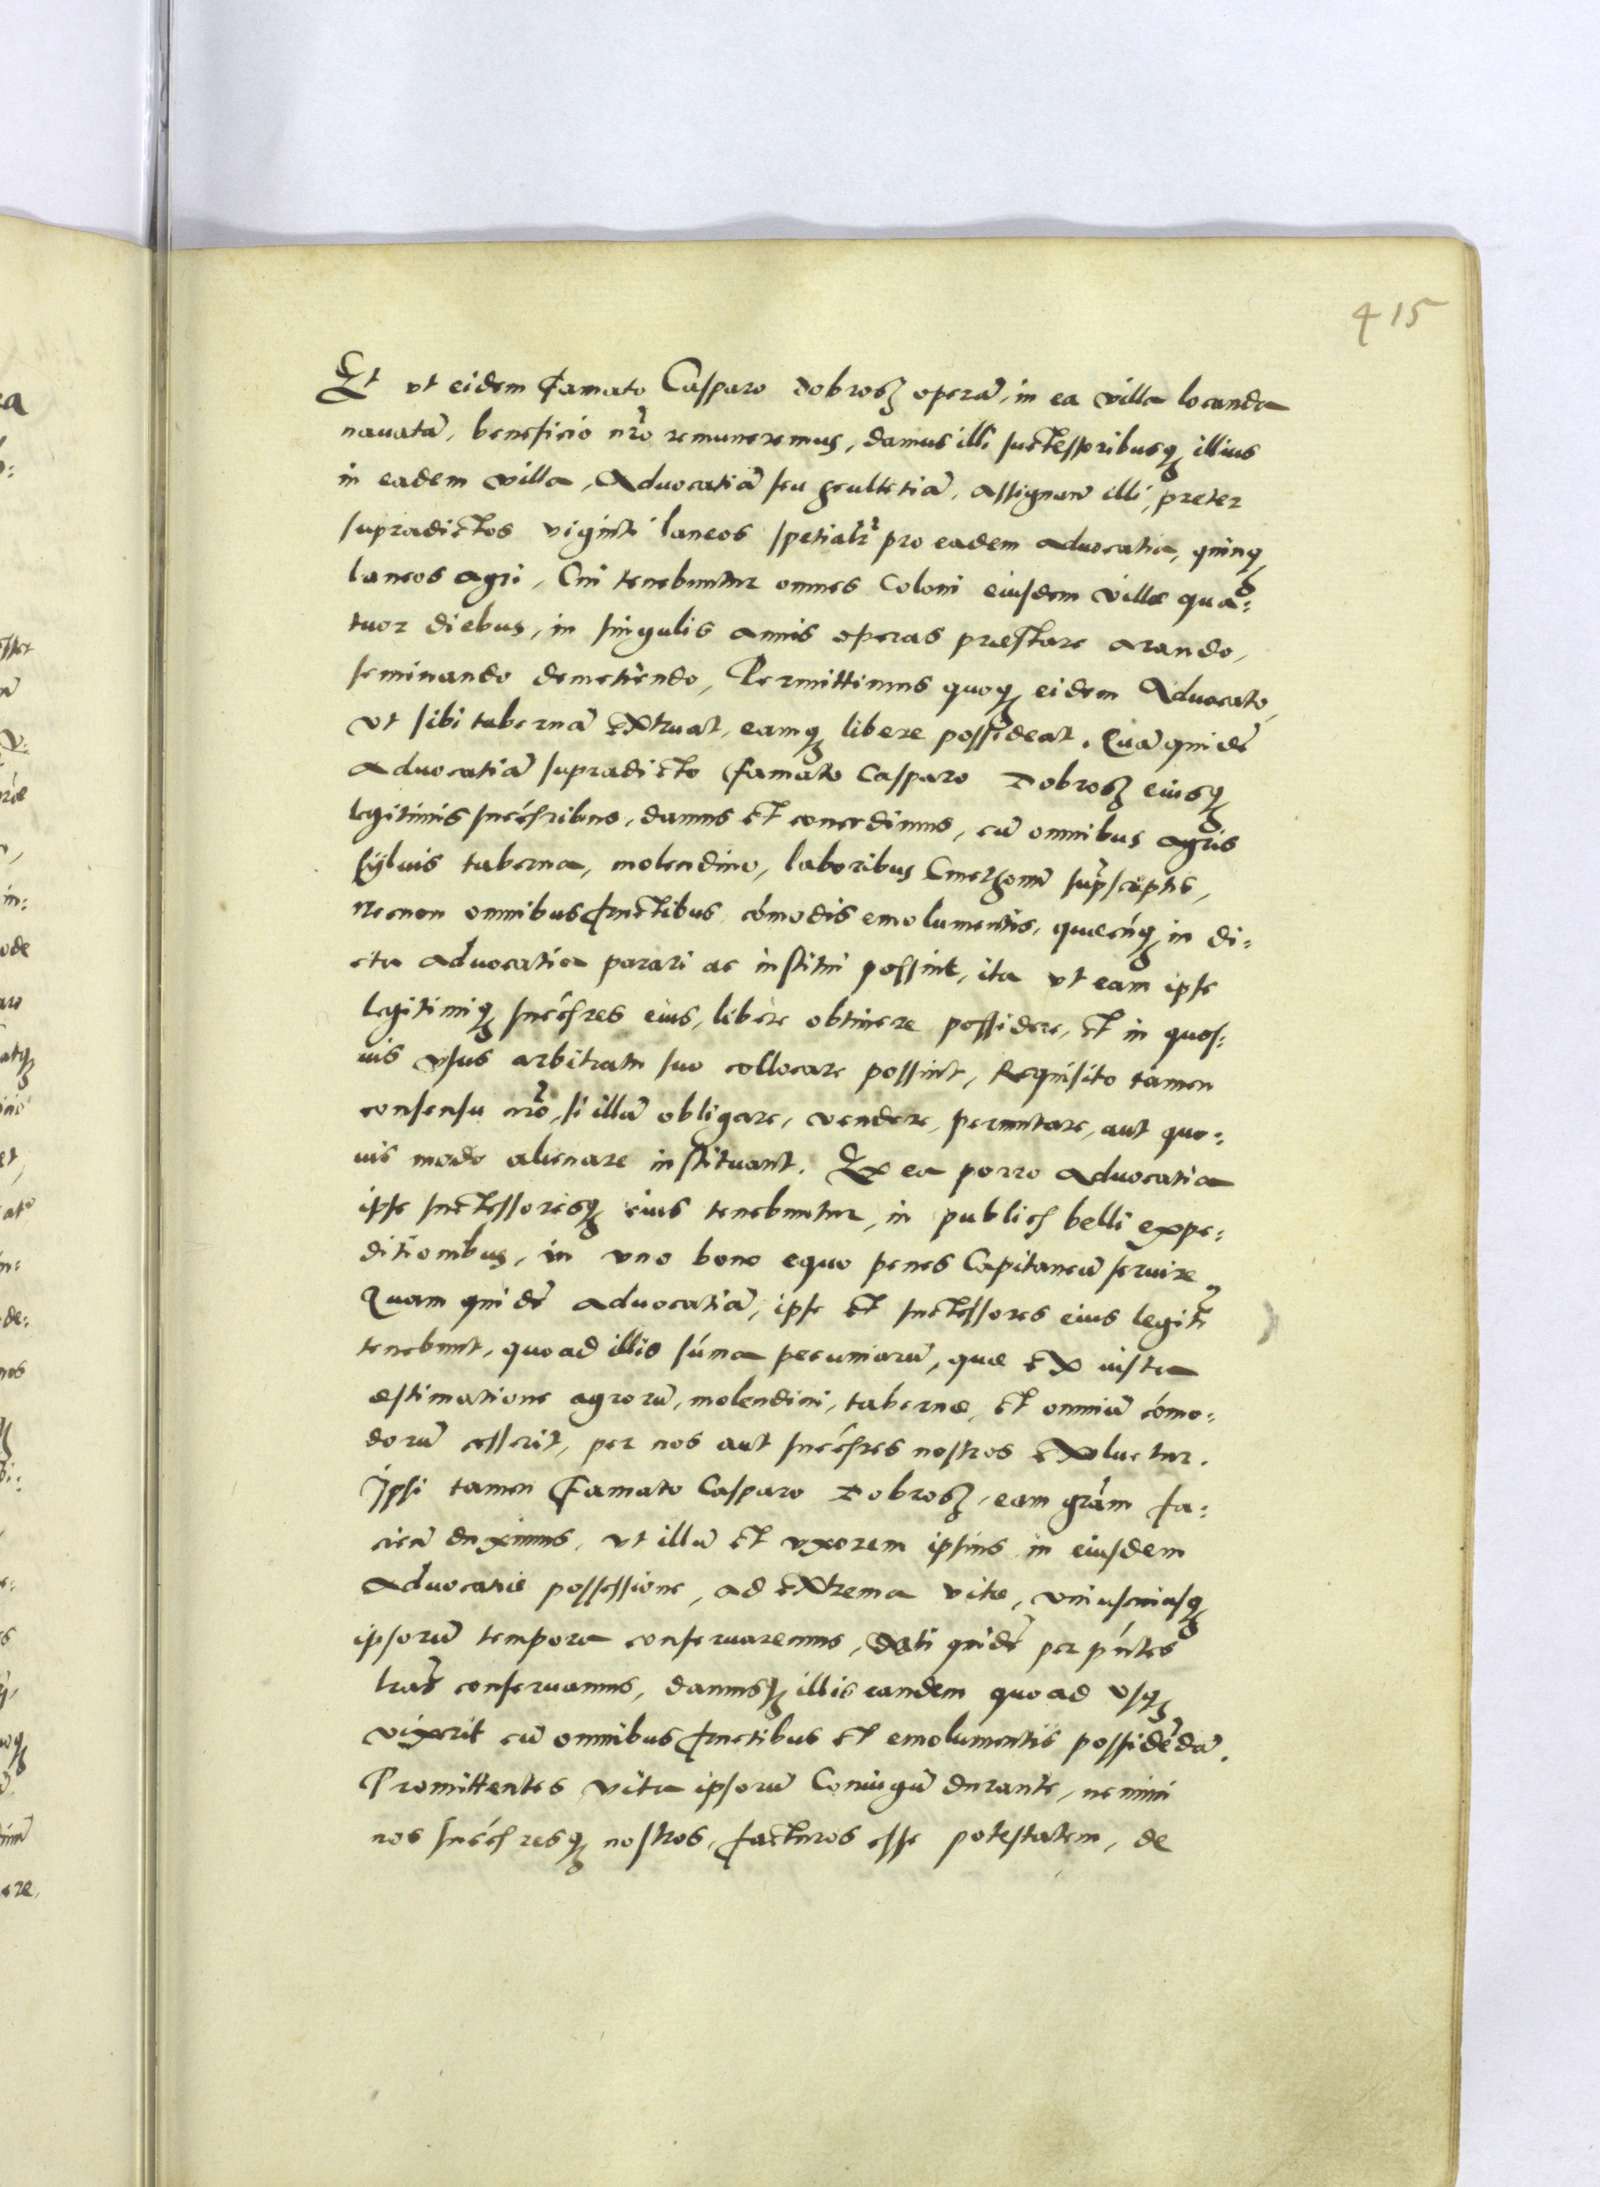 415
Et vt eidem famato Casparo Dobrosz operã, in ea villa locanda
nauatã, beneficio nrõ remuneremus, damus illi successoribusq illius
in eadem villa, Aduocatiã seu scultetiã, assignam̃ illi, preter
supradictos viginti laneos spetialr̃ pro eadem aduocatia, quinq
laneos agri, Cui tenebuntur omnes Coloni eiusdem villæ qua:
tuor diebus, in singulis annis operas præstare arando,
seminando demetiendo, Permittimus quoq eidem Aduocato,
vt sibi tabernã extruat, eamq libere possideat. Quã quidẽ
aduocatiã supradicto famato Casparo Dobrosz eiusq
legitimis succ̃ribus, damus et concedimus, cũ omnibus agris
syluis taberna, molendino, laboribus Cmetonũ supr̃scriptis,
Necnon omnibus fructibus cõmodis emolumentis, quæcũq in di:
cta aduocatia parari ac institui possint, ita vt eam ipse
legitimiq succ̃res eius, libere obtinere possidere, et in quos:
uis vsus arbitratu suo collocare possint, Requisito tamen
consensu nrõ, si illã obligare, vendere, permutare, aut quo:
uis modo alienare instituant. Ex ea porro aduocatia
ipse successoresq eius tenebuntur, in publicis belli expe:
ditionibus, in vno bono equo penes Capitaneũ seruire,
Quam quidẽ aduocatiã, ipse et successores eius legitĩ
tenebunt, quoad illis sũma pecuniarũ, quæ ex iusta
æstimatione agrorũ, molendini, tabernæ, et omniũ cõmo:
dorũ cesserit, per nos aut succ̃res nostros exoluetur.
Ipsi tamen famato Casparo Dobrosz, eam grãm fa:
ciẽdã duximus, vt illũ et vxorem ipsius in eiusdem
Aduocatiæ possessione, ad extrema vitæ, vniuscuiusq
ipsorũ tempora conseruaremus, quidẽ per pñtes
lrãs conseruamus, damusq illis eandem quoad vsq
vixerit cũ omnibus fructibus et emolumentis possidẽdã.
Promittentes vita ipsorũ Coniugũ durante, nemini
nos succ̃resq nostros, facturos esse potestatem, de